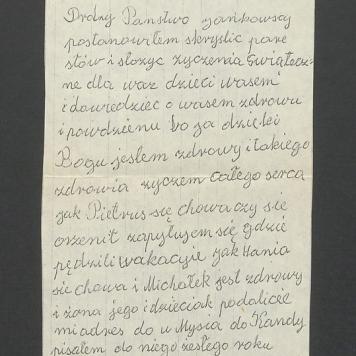 Drodzy Państwo Jankowscy
postanowiłem skryślic pare
słów i słozyc zyczenia Świątecz-
ne dla was dzieci wasem
i dowiedziec o wasem zdrowu
i powdzienu bo ja dzięki
Bogu jestem zdrowy i takiego
zdrowia zyczem całego serca
jak Pietrus się chowa czy sie
orzenił zapytujem się gdzie
pędzili wakacyje jak Hania
sie chowa i Michałek jest zdrowy
i zona jego i dzieciak podalicie
mi adres do u Mysia do Kandy
pisałem do niego zesłego roku